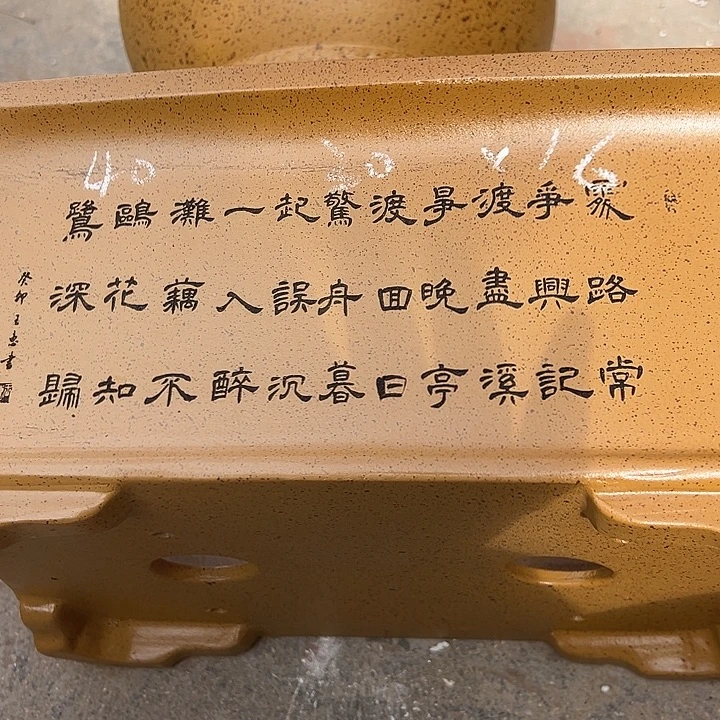 40 × 16
常記溪亭日暮沉醉不知歸
路興盡晚囬舟誤入藕花深
處爭渡爭渡驚起一灘鷗鷺
癸卯 王 書